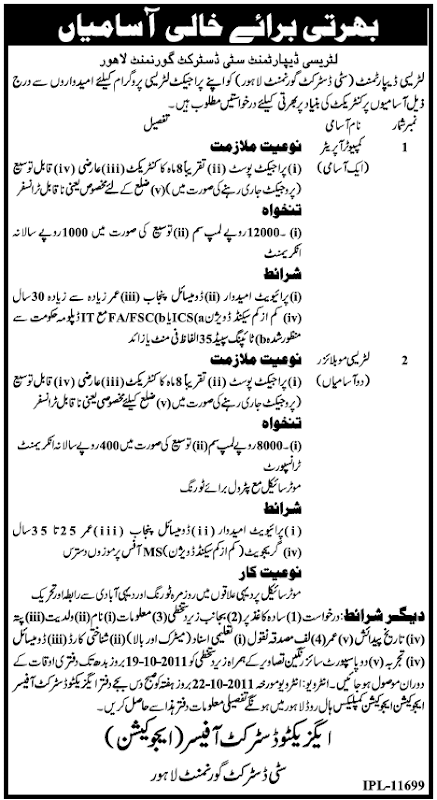 بھرتی برائے خالی آسامیاں
لٹریسی ڈیپارٹمنٹ سٹی ڈسٹرکٹ گورنمنٹ لاہور
لٹریسی ڈیپارٹمنٹ (سٹی ڈسٹرکٹ گورنمنٹ لاہور) کو اپنے پراجیکٹ لٹریسی پروگرام کیلئے امیدواروں سے درج
ذیل آسامیوں پر کنٹریکٹ کی بنیاد پر بھرتی کیلئے درخواستیں مطلوب ہیں۔
نمبر شمار نام آسامی تفصیل
1 کمپیوٹر آپریٹر نوعیت ملازمت
(ایک آسامی) (i) پراجیکٹ پوسٹ (ii) تقریباً 8 ماہ کا کنٹریکٹ (iii) عارضی (iv) قابل توسیع
(پروجیکٹ جاری رہنے کی صورت میں) (v) ضلع کے لئے مخصوص یعنی ناقابل ٹرانسفر
تنخواہ
(i) ۔12000 روپے لمپ سم (ii) توسیع کی صورت میں 1000 روپے سالانہ
انکریمنٹ
شرائط
(i) پرائیویٹ امیدوار (ii) ڈومیسائل پنجاب (iii) عمر زیادہ سے زیادہ 30 سال
(iv) کم از کم سیکنڈ ڈویژن a) ICS یا b) FA/FSC مع IT ڈپلومہ حکومت سے
منظور شدہ b) ٹائپنگ سپیڈ 35 الفاظ فی منٹ یا زائد
2 لٹریسی موبلائزر نوعیت ملازمت
(دو آسامیاں) (i) پراجیکٹ پوسٹ (ii) تقریباً 8 ماہ کا کنٹریکٹ (iii) عارضی (iv) قابل توسیع
(پروجیکٹ جاری رہنے کی صورت میں) (v) ضلع کیلئے مخصوصی یعنی ناقابل ٹرانسفر
تنخواہ
(i) ۔8000 روپے لمپ سم (ii) توسیع کی صورت میں 400 روپے سالانہ انکریمنٹ
ٹرانسپورٹ
موٹر سائیکل مع پٹرول برائے ٹورنگ
شرائط
(i) پرائیویٹ امیدوار (ii) ڈومیسائل پنجاب (iii) عمر 25 تا 35 سال
(iv) گریجویٹ (کم از کم سیکنڈ ڈویژن) MS آفس پر موزوں دسترس
نوعیت کار
موٹر سائیکل پر دیہی علاقوں میں روزمرہ ٹورنگ اور دیہی آبادی سے رابطہ اور تحریک
دیگر شرائط: درخواست (1) سادہ کاغذ پر (2) بجانب زیر دستخطی (3) معلومات (i) نام (ii) ولدیت (iii) پتہ
(iv) تاریخ پیدائش (v) عمر (4) لف مصدقہ نقول (i) تعلیمی اسناد (میٹرک اور بالا) (ii) شناختی کارڈ (iii) ڈومیسائل
(iv) تجربہ (v) دو پاسپورٹ سائز رنگین تصاویر کے ہمراہ زیر دستخطی کو 19-10-2011 بروز بدھ تک دفتری اوقات کے
دوران موصول ہو جائیں۔ انٹرویو: انٹرویو مورخہ 22-10-2011 بروز ہفتہ کو صبح دس بجے دفتر ایگزیکٹو ڈسٹرکٹ آفیسر
ایجوکیشن ایجوکیشن کمپلیکس ہال روڈ لاہور میں ہونگے تفصیلی معلومات دفتر ہذا سے حاصل کریں۔
ایگزیکٹو ڈسٹرکٹ آفیسر (ایجوکیشن)
سٹی ڈسٹرکٹ گورنمنٹ لاہور
IPL-11699